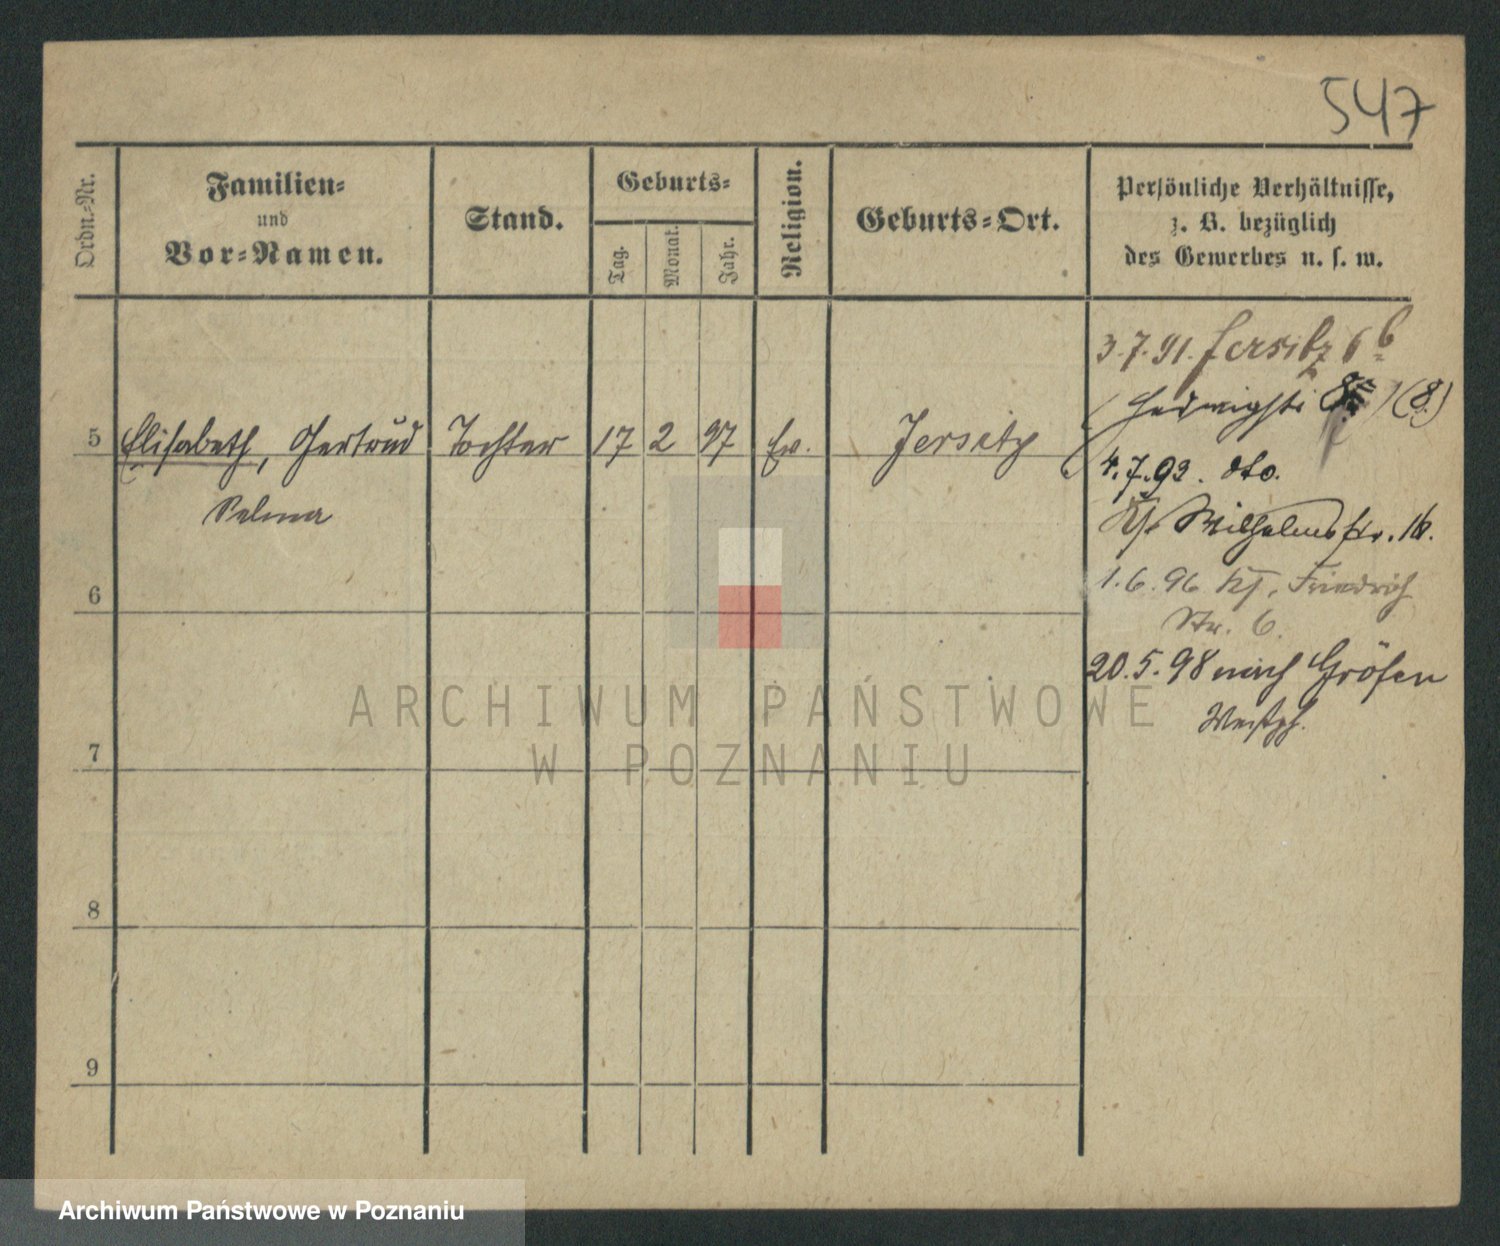 547
Ordn.-Nr.
Familien-
und
Vor-Namen.
Stand.
Geburts-
Tag.
Monat.
Jahr.
Religion.
Geburts-Ort.
Persönliche Verhältnisse,
z. B. bezüglich
des Gewerbes u. s. w.
3.7.91. Jersitz 6 b
Hedwigstr. (8.)
5 Elisabeth, Gertrud Tochter 17 2 97 Ev. Jersitz
4.7.93. dto.
Selma
Wilhelmstr. 16.
6
1.6.96 Friedrich
Str. 6.
20.5.98 nach
Westph.
7
8
9
ARCHIWUM PAŃSTWOWE
W POZNANIU
Archiwum Państwowe w Poznaniu